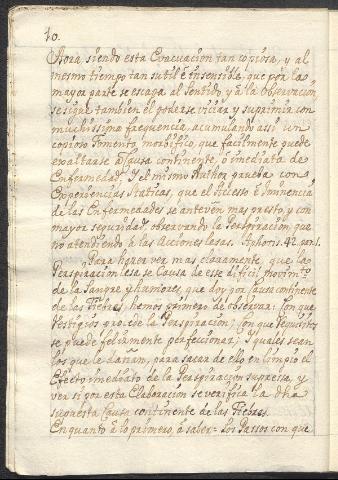 40.
Aora, siendo esta Evacuacion tan copiosa, y al
mesmo tiempo tan sutil è insensible, que por la
mayor parte se escapa al Sentido, y à la Observacion
se sigue tambien el poderse viciar, y suprimir con
muchissima frequencia, acumulando assi un
copioso Fomento morbifico, que facilmente puede
exaltarse à Causa continente, ò imediata de
Enfermedad. Y el mismo Author prueba con
Experiencias Staticas, que el acceso è iminencia
de las Enfermedades se antevèn mas presto, y con
mayor seguridad, observando la Perspiracion, que
no atendiendo à las Acciones lesas. Aphoris. 42. par. 1.
Para haçer ver mas claramente, que la
Perspiracion lesa es Causa de ese dificil movim.to
de la Sangre, y humores, que doy por Causa continente
de las Fiebres, hemos primero de observar: Con que
Vestigios procede la Perspiracion; Con que Requisitos
se puede felizmente perfeccionar; Y quales sean
los que le dañan, para sacar de ello en limpio el
Efecto imediato de la Perspiracion supresa, y
ver si por esta Elaboracion se verifica la dha
supuesta Causa continente de las Fiebres.
En quanto à lo primero, à saber: Los Passos con que